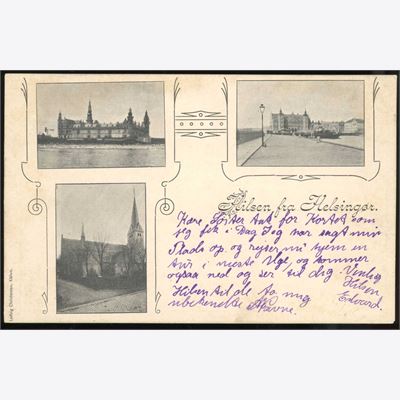 Hilsen fra Helsingør.
Kære Søster Tak for Kortet som
jeg fik i Dag Jeg har sagt min
Plads op, og rejser nu hjem en
Tur i næste Uge, og kommer
ogsaa ned og ser til dig Venlig
Hilsen
Edvard.
Hilsen til de to mig
ubekendte Navne.